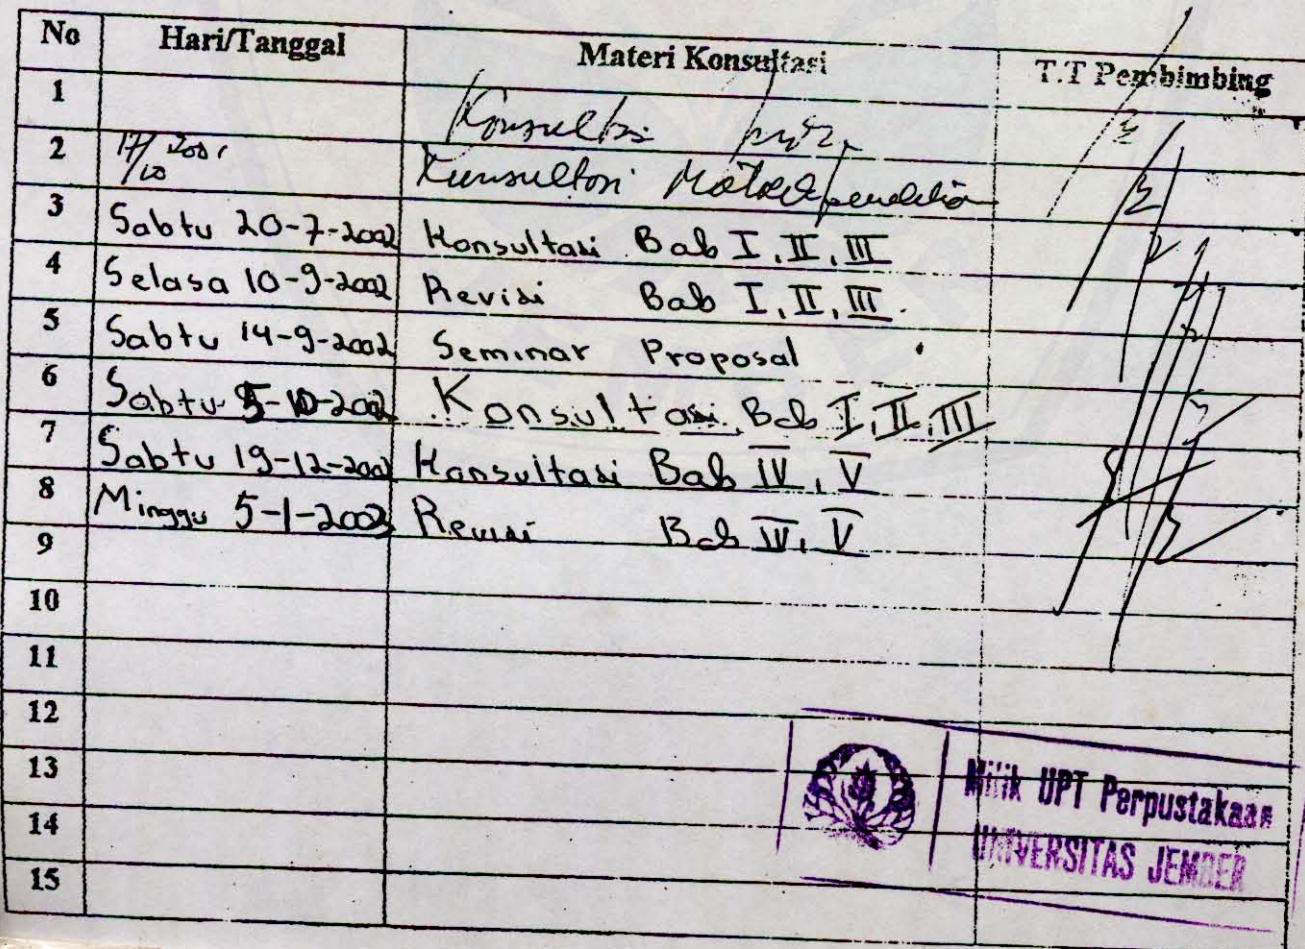 No Hari/Tanggal Materi Konsultasi T.T Pembimbing
1 Konsultasi
2 17/10 2001 Konsultasi
3 Sabtu 20-7-2002 Konsultasi Bab I, II, III
4 Selasa 10-9-2002 Revisi Bab I, II, III.
5 Sabtu 14-9-2002 Seminar Proposal
6 Sabtu 5-10-2002 Konsultasi Bab I, II, III
7 Sabtu 19-12-2002 Konsultasi Bab IV, V
8 Minggu 5-1-2003 Revisi Bab IV, V
9
10
11
12
13
14
15
Milik UPT Perpustakaan
UNIVERSITAS JEMBER